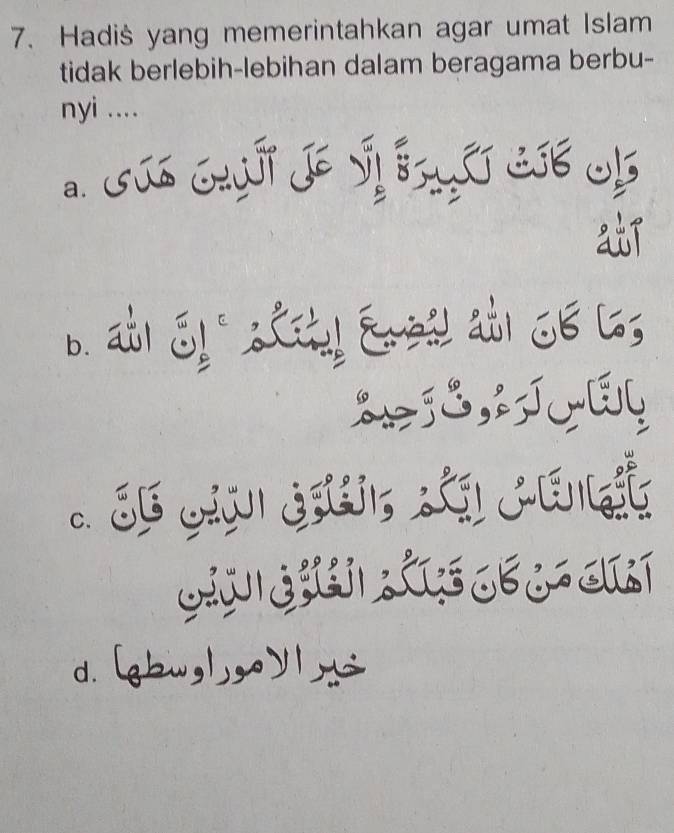 7. Hadiṡ yang memerintahkan agar umat Islam
tidak berlebih-lebihan dalam beragama berbu-
nyi ....
a. وَإِن كَانَتْ لَكَبِيرَةً إِلَّا عَلَى ٱلَّذِينَ هَدَى
ٱللَّهُ
b. وَمَا كَانَ اللَّهُ لِيُضِيعَ إِيمَانَكُمْ ۚ إِنَّ اللَّهَ
بِالنَّاسِ لَرَءُوفٌ رَّحِيمٌ
c. يَأَيُّهَاالنَّاسُ إِيَّكُمْ وَالْغُلُوَّفِي الدِّيْنِ فَإِنَّ
أَهْلَكَ مَنْ كَانَ قَبْلَكُمْ الْغُلُوُّفِي الدِّيْنِ
d. خير الاموراوسطها